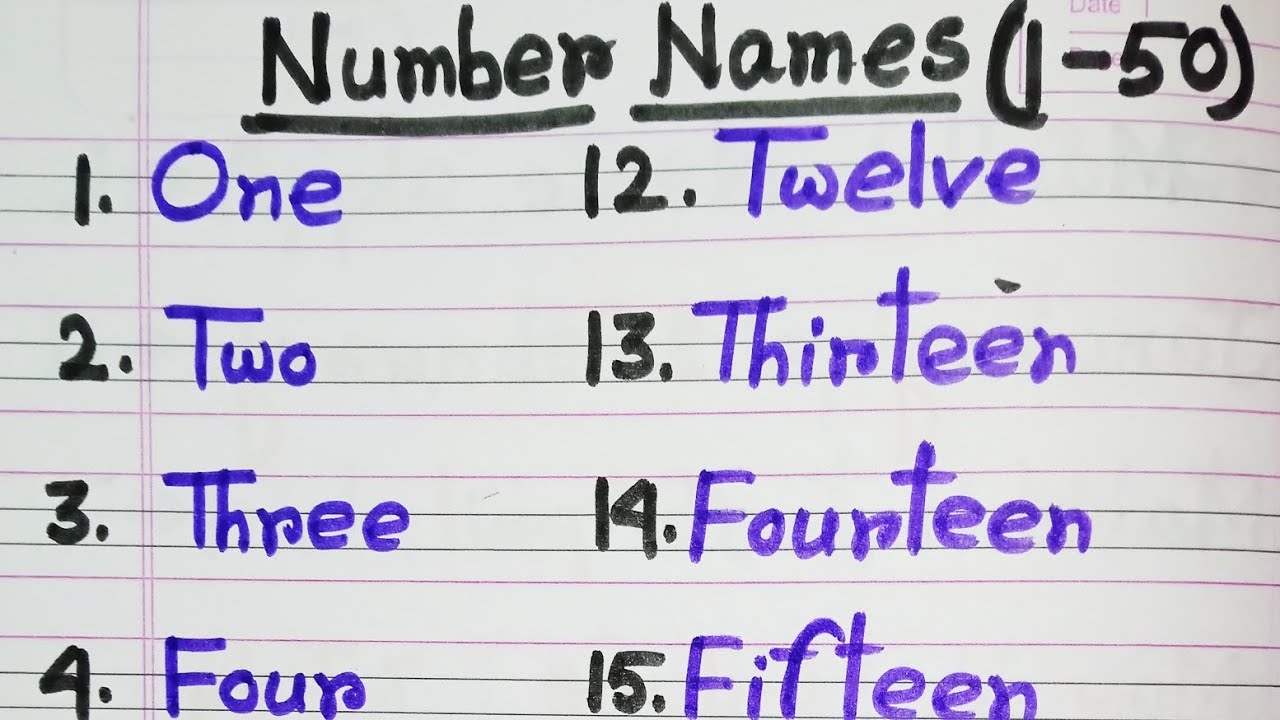 Date
Number Names (1-50)
1. One
2. Two
3. Three
4. Four
12. Twelve
13. Thirteen
14. Fourteen
15. Fifteen